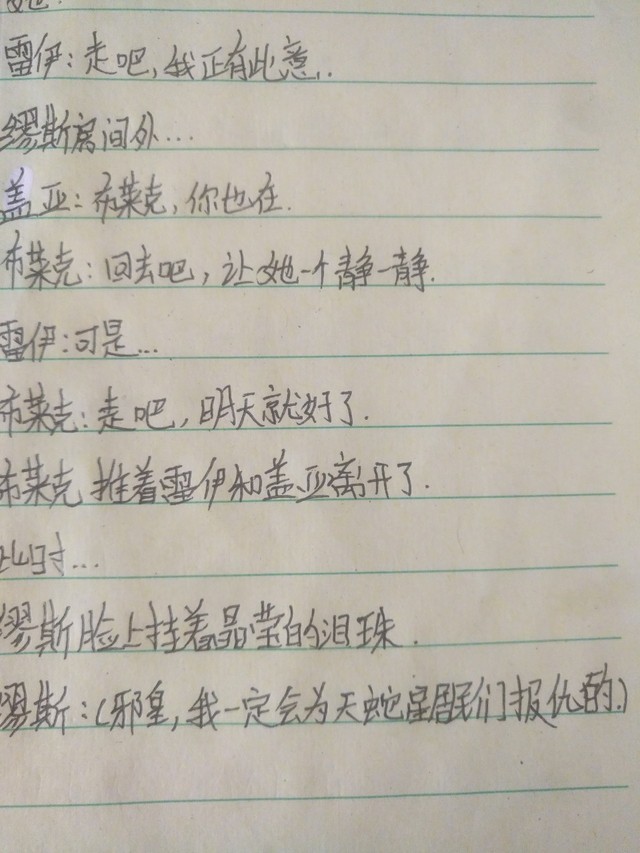 雷伊：走吧，我正有此意.
缪斯房间外…
盖亚：布莱克，你也在.
布莱克：回去吧，让她一个静一静.
雷伊：可是…
布莱克：走吧，明天就好了.
布莱克推着雷伊和盖亚离开了.
此时…
缪斯脸上挂着晶莹的泪珠.
缪斯：(邪皇，我一定会为天蛇星居民们报仇的.)